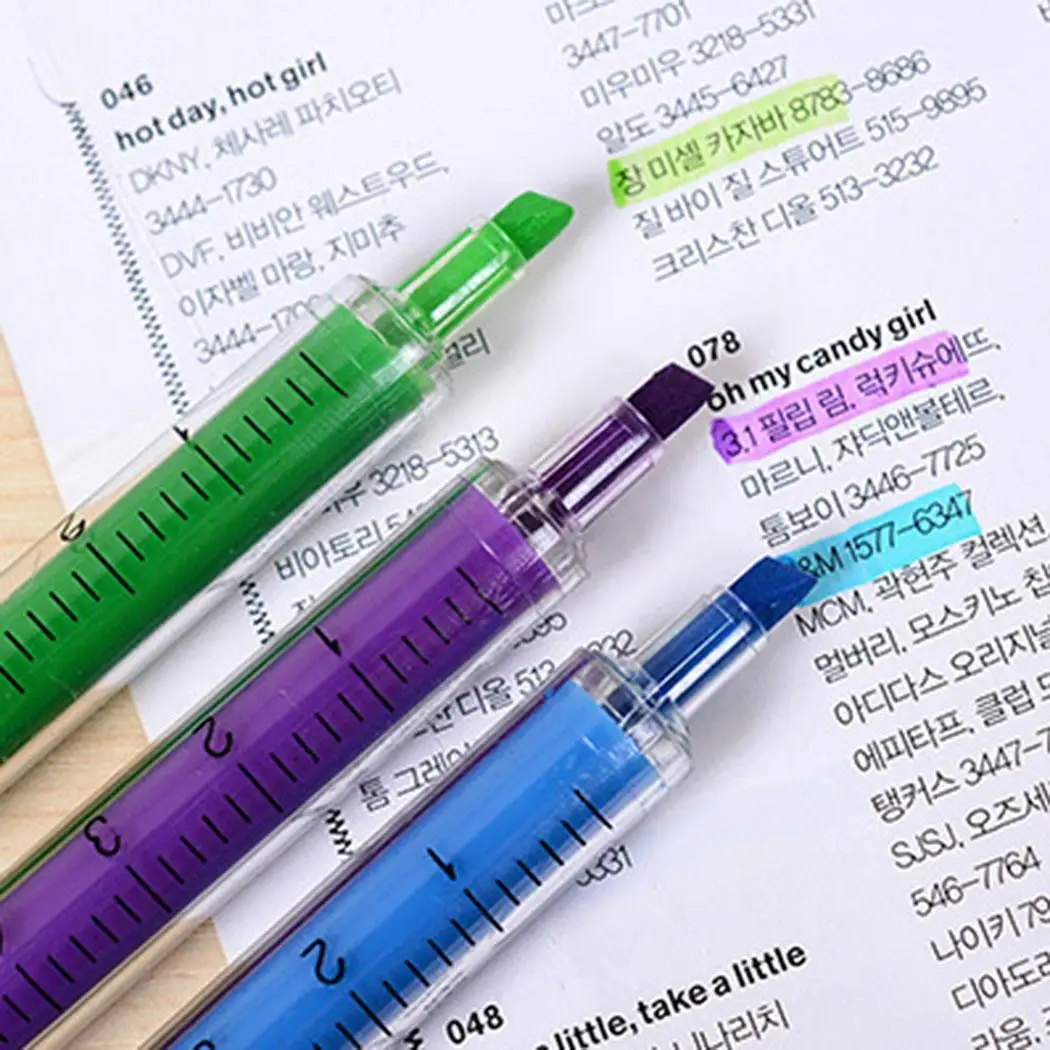 046
hot day, hot girl
DKNY, 체사레 파치오티
3444-1730
DVF, 비비안 웨스트우드,
이자벨 마랑, 지미추
3218-5313
비아토리
디올 513
톰 그레이
3331
3447-7701
미우미우 3218-5331
알도 3445-6427
장 미셸 카자바 8783-8686
질 바이 질 스튜어트 515-9895
크리스찬 디올 513-3232
078
oh my candy girl
3.1 필립 림, 럭키슈에뜨,
마르니, 쟈딕앤볼테르,
톰보이 3446-7725
&M 1577-6347
MCM, 곽현주 컬렉션
멀버리, 모스키노 칩
아디다스 오리지널
에피타프, 클럽
탱커스 3447-7
SJSJ, 오즈세
546-7764
나이키 79
디아도라
라움,
048
a little, take a little
나나리치
1
2
1
2
3
1
2